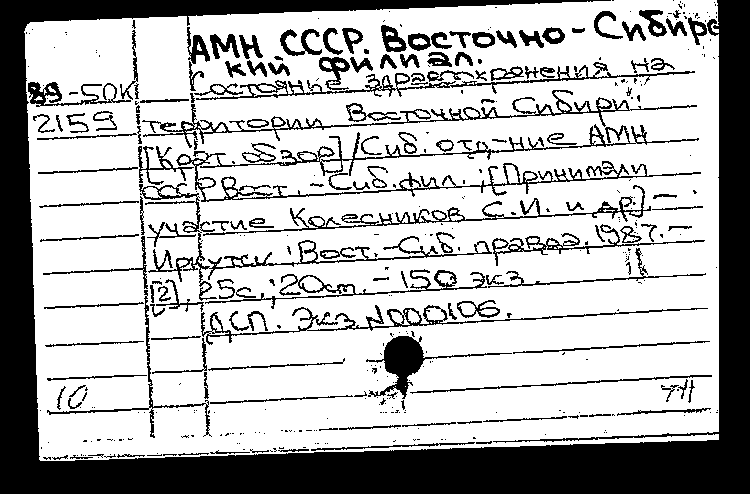 АМН СССР. Восточно-Сибирс
кий филиал.
89-50К Состояние здравоохранения на
2159 территории Восточной Сибири:
[Крат. обзор] / Сиб. отд-ние АМН
СССР Вост.-Сиб. фил.; [Принимали
участие Колесников С.И. и др.]. -
Иркутск: Вост.-Сиб. правда, 1987. -
[2], 25с.; 20см. - 150 экз.
ДСП. Экз N000106.
10